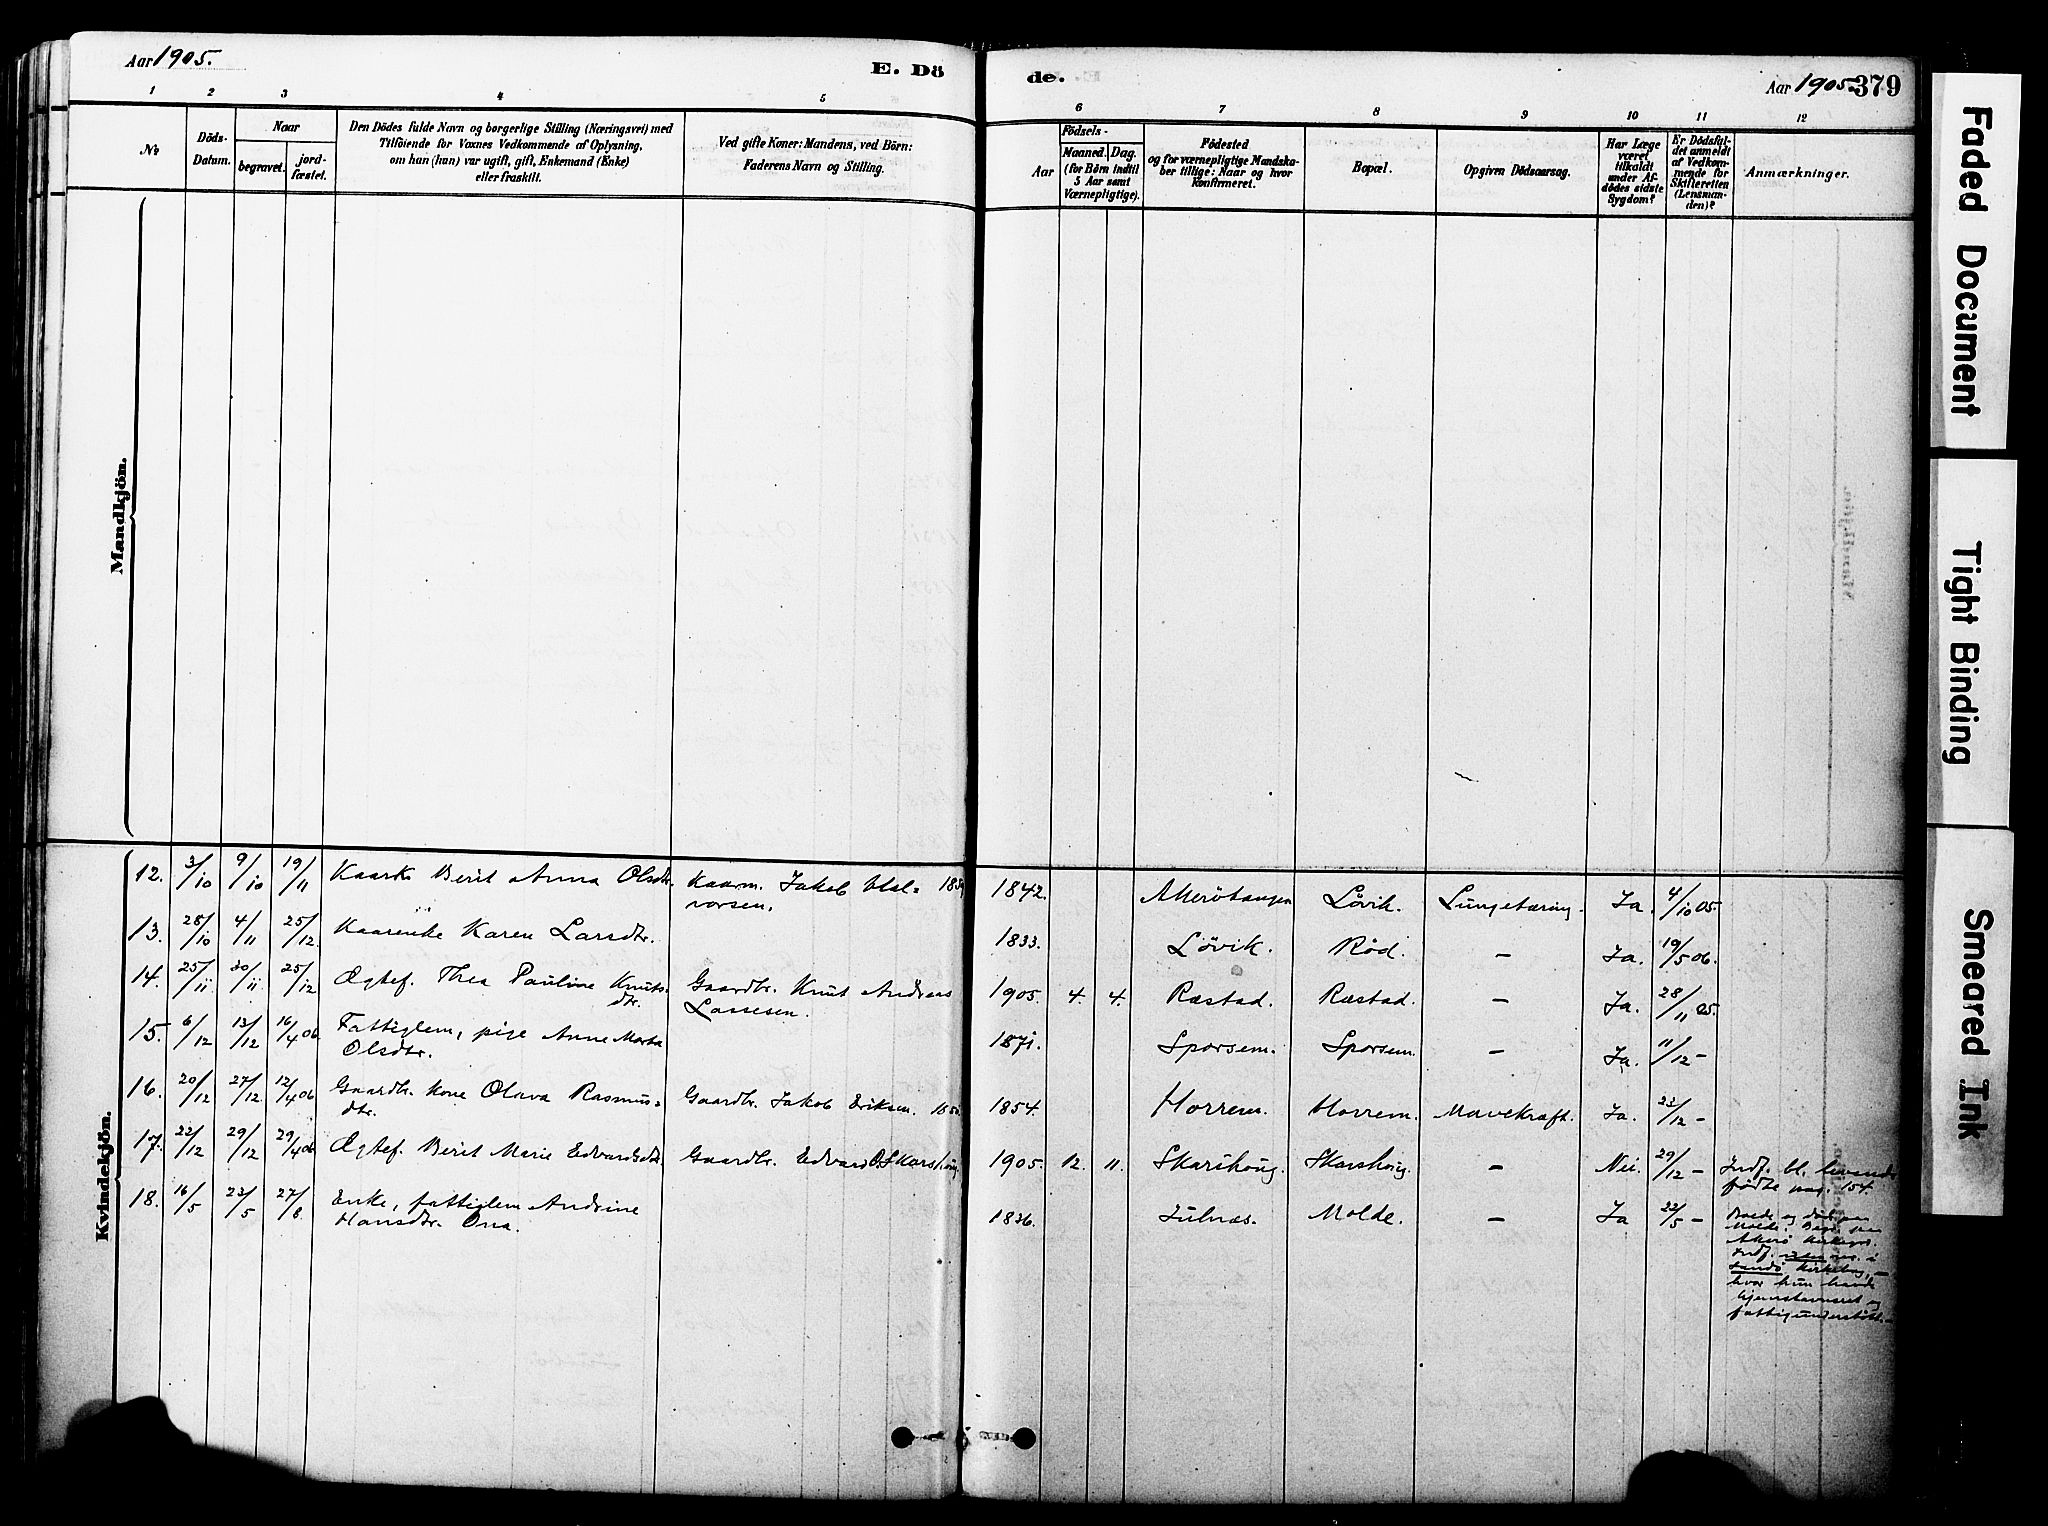 Aar 1905.
E. Dö
de.
Aar 1905.
379
1 2 3 4 5
6 7 8 9 10 11 12
No
Döds-
Datum.
Naar
begravet.
jord-
fæstet.
Den Dödes fulde Navn og borgerlige Stilling (Næringsvei) med
Tilföiende for Voxnes Vedkommende af Oplysning,
om han (hun) var ugift, gift, Enkemand (Enke)
eller fraskilt.
Ved gifte Koner: Mandens, ved Börn:
Faderens Navn og Stilling.
Födsels-
Aar
Maaned.
Dag.
(for Börn indtil
5 Aar samt
Værnepligtige).
Födested
og for værnepligtige Mandska-
ber tillige: Naar og hvor
konfirmeret.
Bopæl.
Opgiven Dödsaarsag.
Har Læge
været
tilkaldt
under Af-
dödes sidste
Sygdom?
Er Dödsfal-
det anmeldt
af Vedkom-
mende for
Skifteretten
(Lensman-
den)?
Anmærkninger.
Mandkjön.
Kvindekjön.
12. 3/10 9/10 19/11 Kaark. Berit Anna Olsdtr. Kaarm. Jakob Hal- 1842. Akerötangen Lövik. Lungetæring. Ja. 4/10 05.
vorsen.
13. 28/10 4/11 25/12 Kaarenke Karen Larsdtr. 1833. Lövik. Röd. – Ja. 19/5 06.
14. 25/11 30/11 25/12 Ægtef. Thea Pauline Knuts- Gaardbr. Knut Andreas 1905. 4. 4. Ræstad. Ræstad. – Ja. 28/11 05.
dtr. Lassesen.
15. 6/12 13/12 16/4 06 Fattiglem, pige Anne Marta 1871. Sporsem. Sporsem. – Ja. 11/12 –
Olsdtr.
16. 20/12 27/12 12/4 06 Gaardbr. kone Olava Rasmus- Gaardbr. Jakob Eriksen. 1854. Horrem. Horrem. Mavekræft. Ja. 23/12 –
dtr.
17. 22/12 29/12 29/4 06 Ægtef. Berit Marie Edvardsdtr. Gaardbr. Edvard O. Skarshoug 1905. 12. 11. Skarshoug. Skarshoug. – Nei. 29/12 – Indf. bl. levende
födte pag. 154.
18. 16/5 23/5 27/8 Enke, fattiglem Andrine 1836. Julnæs. Molde. – Ja 22/5 –
Hansdtr. Ona.
Boede og döde paa
Molde. Begr. paa
Akerö Kirkegd.
Indf. i
Sandö Kirkebog, –
hvor hun havde
hjemstavnsret og
fattigunderstött. –
Faded Document
Tight Binding
Smeared Ink